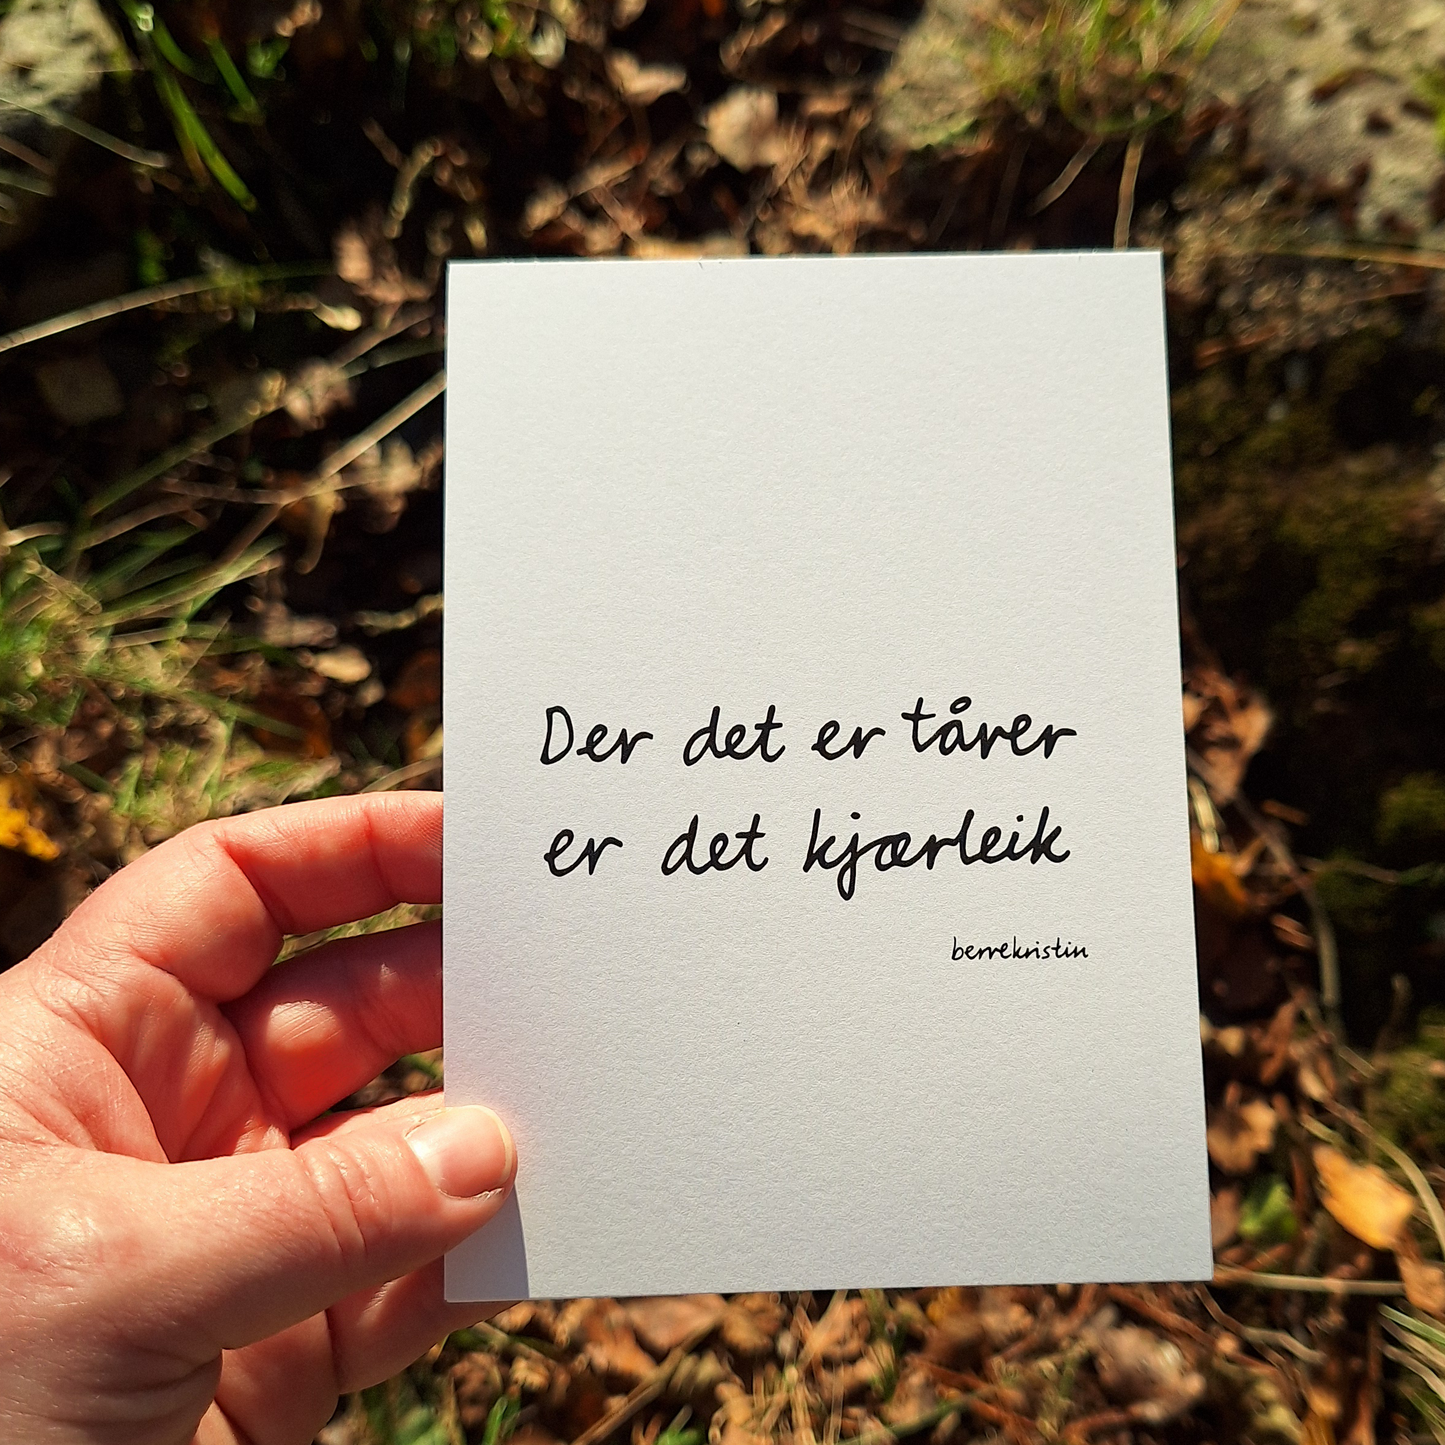 Der det er tårer
er det kjærleik
berrekristin